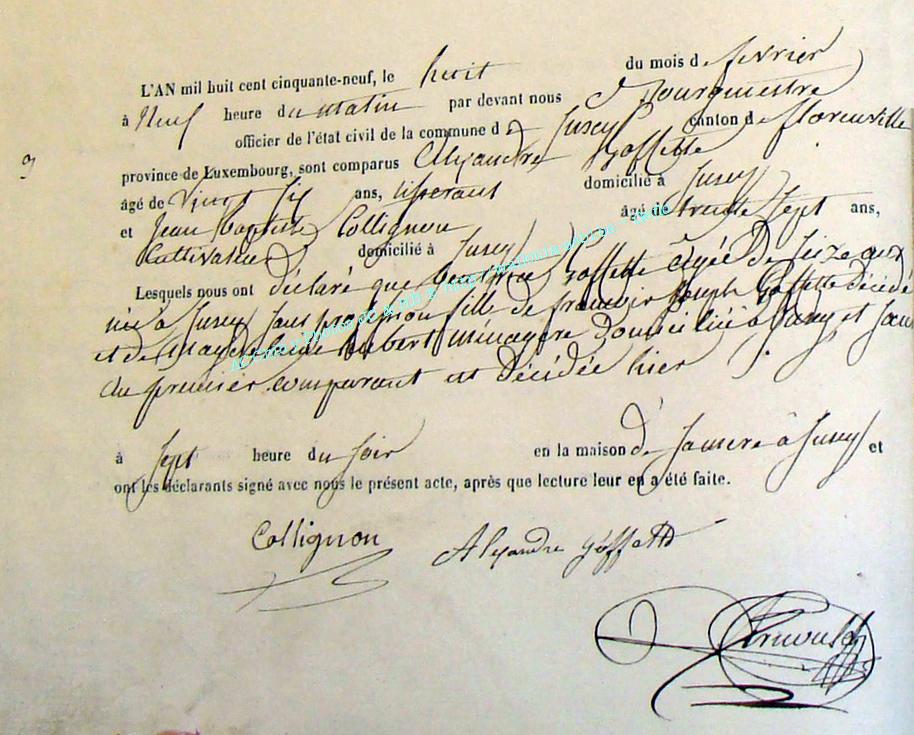 L'AN mil huit cent cinquante-neuf, le huit du mois d e fevrier
à Neuf heure du matin par devant nous Bourguestre
officier de l'état civil de la commune d e Jusey canton de florenville
9
province de Luxembourg, sont comparus Alexandre Goffette
âgé de vingt six ans, tisserant domicilié à Jusey
et Jean Baptiste Collignon âgé de trente sept ans,
Cultivateur domicilié à Jusey
Lesquels nous ont déclaré que Goffette âgée De Seize ans
née à Jusey Sans profession fille de francois Joseph Goffette décédé
et de Magdelaine hubert ménagère Domiciliée à Jusey et Soeur
du premier comparant est Décédée hier
à Sept heure du Soir en la maison de Sa mere à Jusey et
ont les déclarants signé avec nous le présent acte, après que lecture leur en a été faite.
Collignon Alexandre Goffette